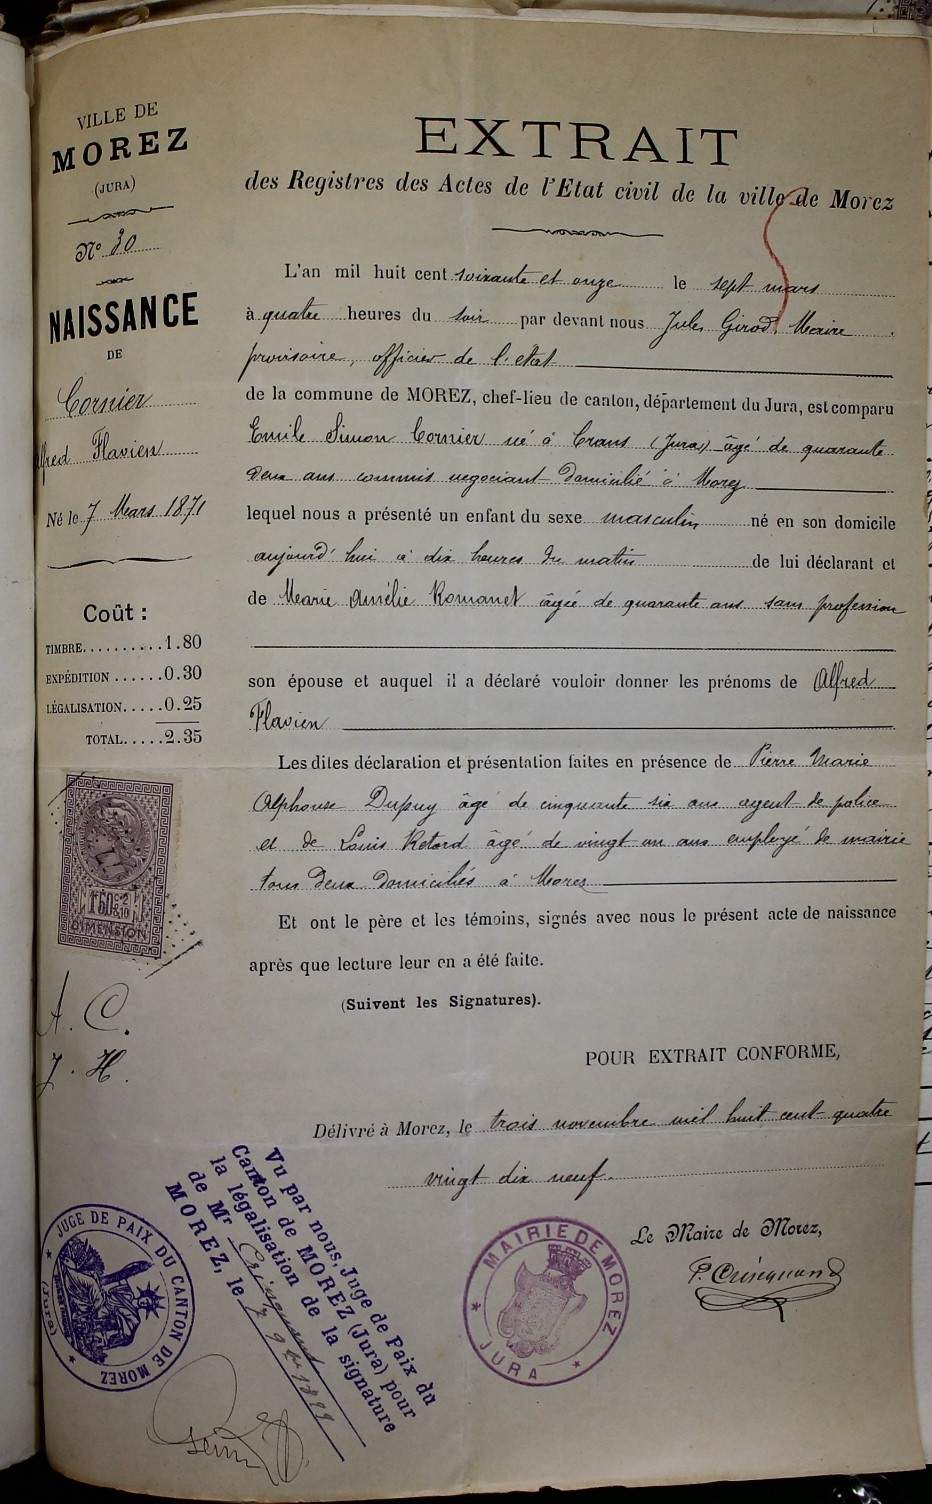 VILLE DE
MOREZ
(JURA)
N° 30
NAISSANCE
DE
Cornier
Alfred Flavien
Né le 7 Mars 1871
Coût :
TIMBRE..........1.80
EXPÉDITION ......0.30
LÉGALISATION.....0.25
TOTAL.....2.35
1F50c 2/10
DIMENSION
A. C.
J. H.
EXTRAIT
des Registres des Actes de l'Etat civil de la ville de Morez
L'an mil huit cent soixante et onze le sept mars
à quatre heures du soir par devant nous Jules Girod, Maire
provisoire, officier de l'etat
de la commune de MOREZ, chef-lieu de canton, département du Jura, est comparu
Emile Simon Cornier né à Crans (Jura) âgé de quarante
deux ans commis negociant domicilié à Morez
lequel nous a présenté un enfant du sexe masculin né en son domicile
aujourd'hui à dix heures du matin de lui déclarant et
de Marie Amélie Romanet âgée de quarante ans sans profession
son épouse et auquel il a déclaré vouloir donner les prénoms de Alfred
Flavien
Les dites déclaration et présentation faites en présence de Pierre Marie
Alphonse Dupuy âgé de cinquante six ans agent de police
et de Louis Retord âgé de vingt un ans employé de mairie
tous deux domiciliés à Morez
Et ont le père et les témoins, signés avec nous le présent acte de naissance
après que lecture leur en a été faite.
(Suivent les Signatures).
POUR EXTRAIT CONFORME,
Délivré à Morez, le trois novembre mil huit cent quatre
vingt dix neuf.
Le Maire de Morez,
P. Crisquand
MAIRIE DE MOREZ
JURA
Vu par nous, Juge de Paix du
Canton de MOREZ (Jura) pour
la légalisation de la signature
de Mr Crisquand
MOREZ, le 4 9bre 1899
JUGE DE PAIX DU CANTON DE MOREZ
(Jura)